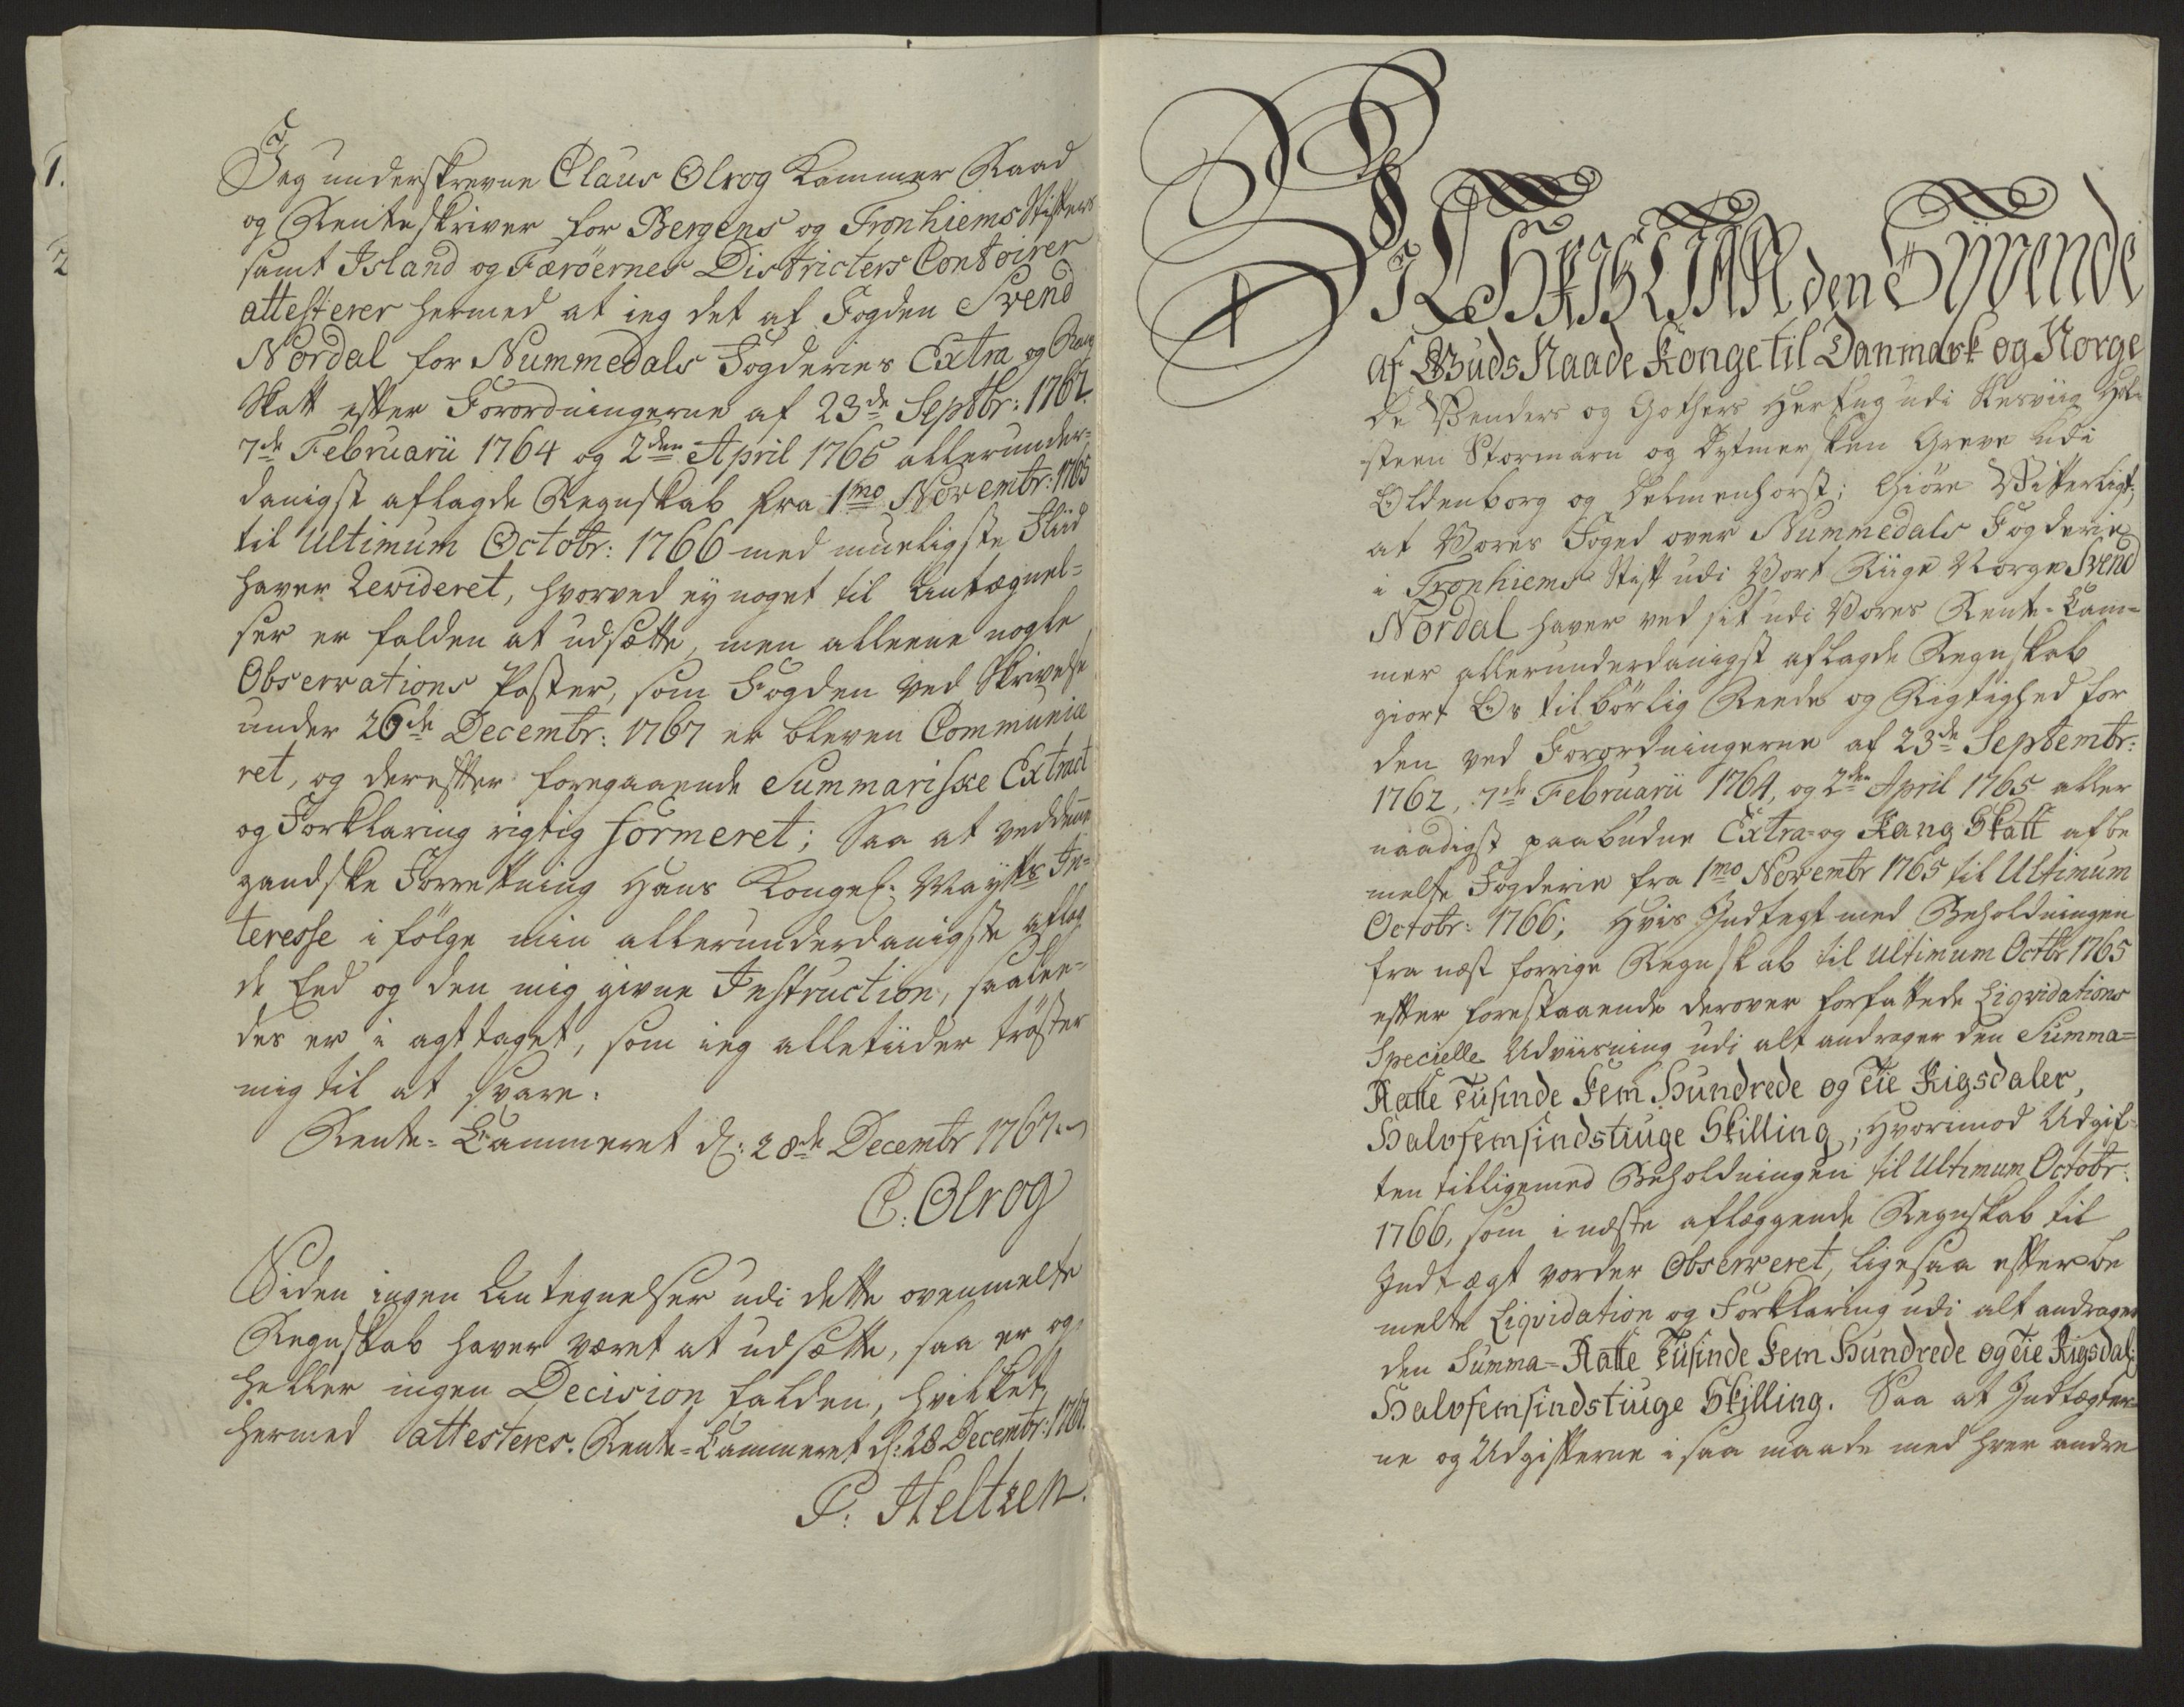 1.
2
Jeg underskrevne Claus Olrog Kammer Raad
og Renteskriver for Bergens og Tronhiems Stifters
samt Island og Færöernes Districters Contoirer
attesterer hermed at ieg det af Fogden Svend
Nordal for Nummedals Fogderies Extra og Rang
Skatt efter Forordningerne af 23de Septbr: 1762.
7de Februarii 1764 og 2den April 1765 allerunder-
danigst aflagde Regnskab fra 1mo Novembr: 1765
til Ultimum Octobr: 1766 med mueligste Fliid
haver Revideret, hvorved ey noget til Antægnel-
ser er falden at udsætte, men alleene nogle
Observations Poster, som Fogden ved Skrivelse
under 26de Decembr: 1767 er bleven Communice
ret, og derefter foregaaende Summariske Extract
og Forklaring rigtig formeret; Saa at ved denne
gandske Forretning Hans Kongel: Mayts In-
teresse i fölge min allerunderdanigste aflag
de Eed og den mig givne Instruction, saalee-
des er i agttaget, som ieg alletiider tröster
mig til at svare.
Rente-Cammeret d: 28de Decembr 1767.
C: Olrog
Siden ingen Antegnelser udi dette ovenmelte
Regnskab haver været at udsætte, saa er og
heller ingen Decision falden, hvilket
hermed attesteres. Rente-Cammeret d: 28 Decembr: 1767.
P: Heltzen.
CHRISTIAN den Syvende
af Guds Naade Konge til Danmark og Norge
De Venders og Gothers Hertug udi Slesviig Hol-
steen Stormarn og Dytmersken Greve udi
Oldenborg og Delmenhorst; Giöre Vitterligt;
at Vores Foged over Nummedals Fogderie
i Tronhiems Stift udi Vort Riige Norge Svend
Nordal haver ved sit udi Vores Rente-Cam-
mer allerunderdanigst aflagde Regnskab
giort Os tilbörlig Reede og Rigtighed for
den ved Forordningerne af 23de Septembr:
1762, 7de Februarii 1764, og 2den April 1765 aller
naadigst paabudne Extra- og Rang Skatt af be
melte Fogderie fra 1mo Novembr 1765 til Ultimum
Octobr: 1766; Hvis Indtegt med Beholdningen
fra næst forrige Regnskab til Ultimum Octbr 1765
efter forestaaende derover forfattede Liqvidations
Specielle Udviisning udi alt andrager den Summa-
Aatte Tusinde Fem Hundrede og Tie Rigsdaler,
Halvfemsindstiuge Skilling; Hvorimod Udgif-
ten tilligemed Beholdningen til Ultimum Octobr:
1766, som i næste aflæggende Regnskab til
Indtægt vorder Observeret, ligesaa efter be
melte Liqvidation og Forklaring udi alt andrager
den Summa- Aatte Tusinde Fem Hundrede og Tie Rigsdal:
Halvfemsindstiuge Skilling. Saa at Indtægter-
ne og Udgifterne i saa maade med hver andre